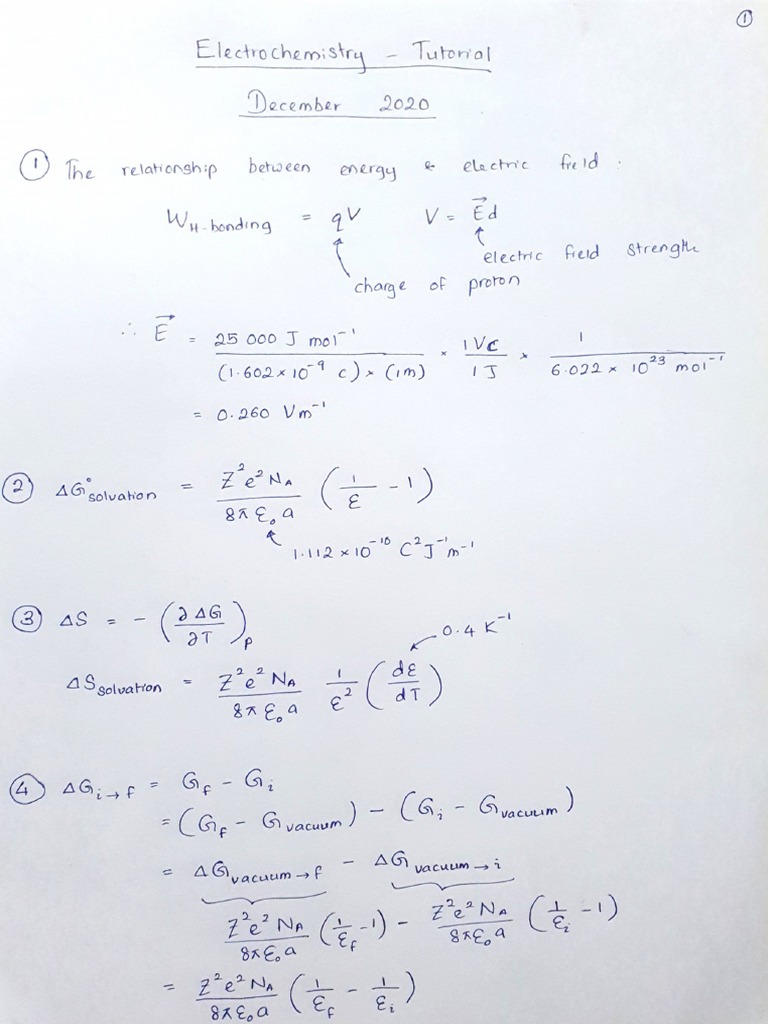 ①
Electrochemistry - Tutorial
December 2020
① The relationship between energy & electric field :
W_H-bonding = qV V = E⃗d
electric field strength
charge of proton
∴ E⃗ = 25 000 J mol⁻¹ / (1.602 × 10⁻⁹ C) × (1m) × 1VC / 1J × 1 / 6.022 × 10²³ mol⁻¹
= 0.260 Vm⁻¹
② ΔG°solvation = Z²e²N_A / 8πε₀a (1/ε - 1)
1.112 × 10⁻¹⁰ C²J⁻¹m⁻¹
③ ΔS = - (∂ΔG / ∂T)_p
0.4 K⁻¹
ΔS_solvation = Z²e²N_A / 8πε₀a 1/ε² (dε / dT)
④ ΔG_i→f = G_f - G_i
= (G_f - G_vacuum) - (G_i - G_vacuum)
= ΔG_vacuum→f - ΔG_vacuum→i
Z²e²N_A / 8πε₀a (1/ε_f - 1) - Z²e²N_A / 8πε₀a (1/ε_i - 1)
= Z²e²N_A / 8πε₀a (1/ε_f - 1/ε_i)